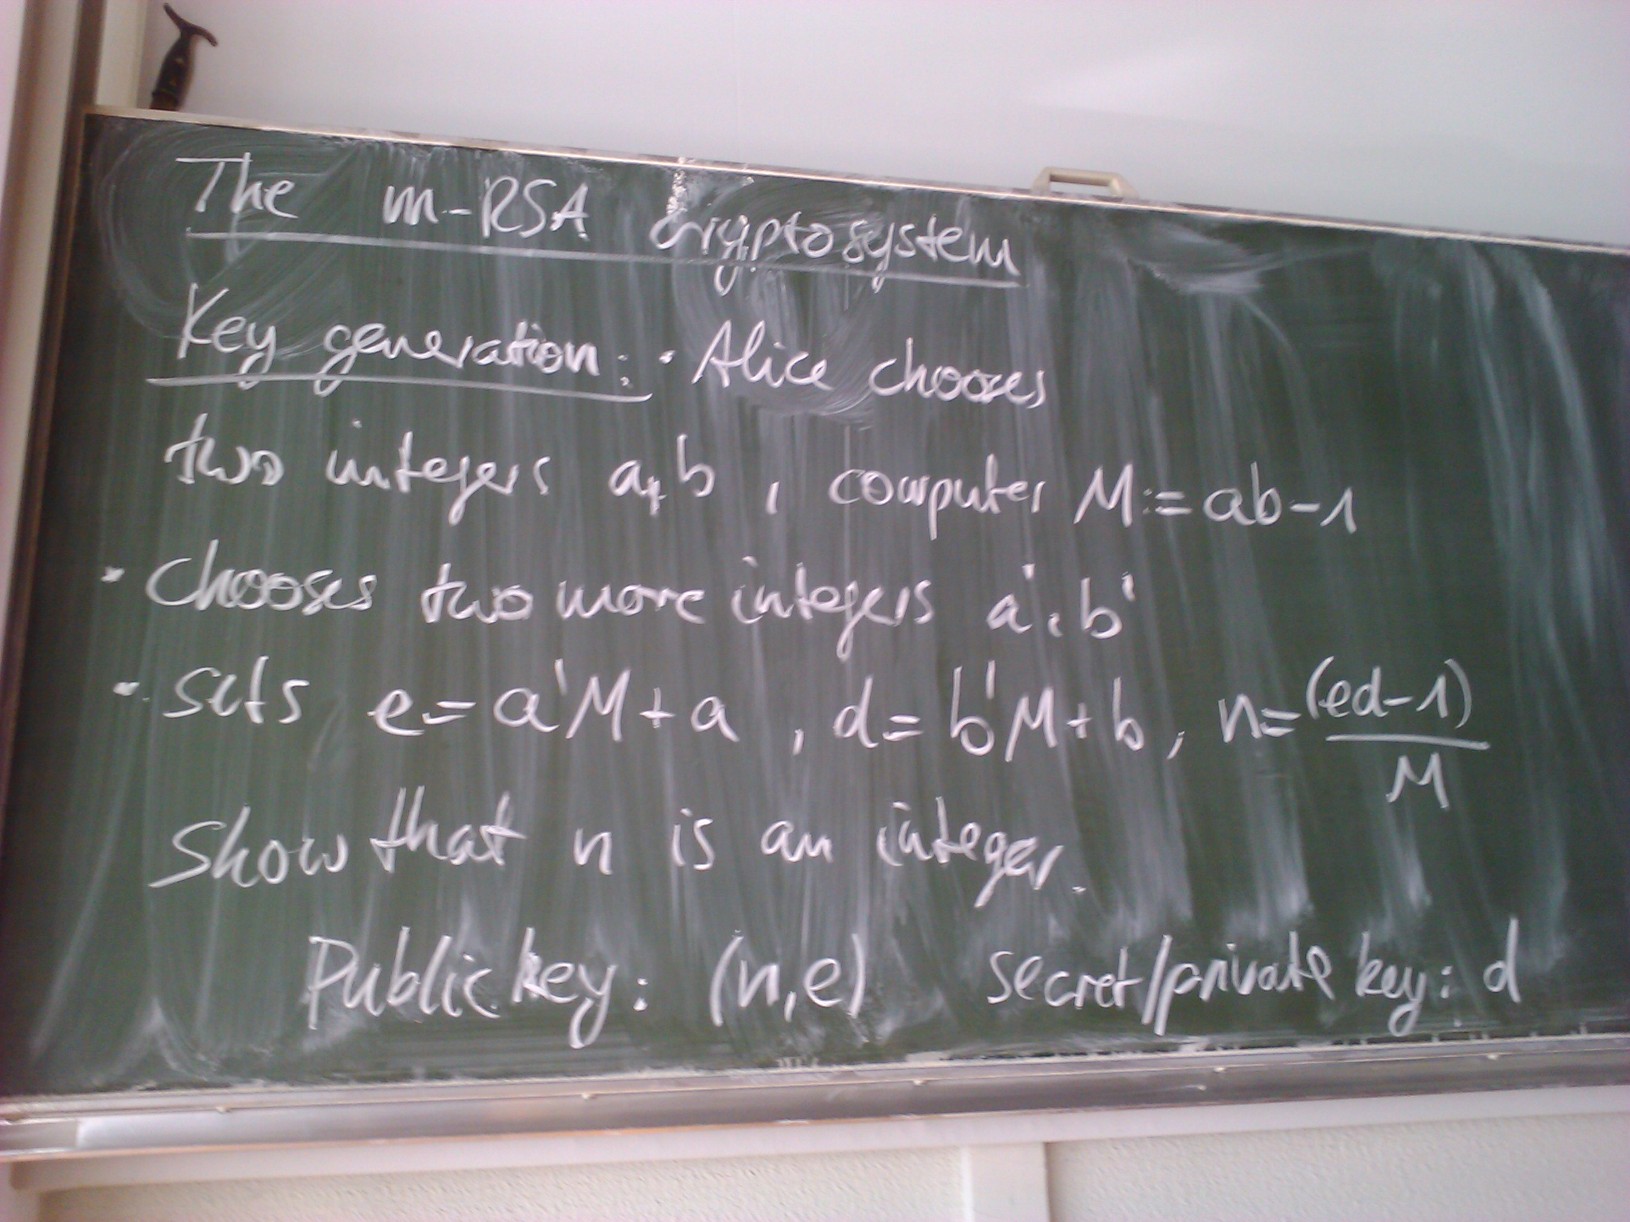 The m-RSA cryptosystem
Key generation: · Alice chooses
two integers a,b, computes M:=ab-1
· chooses two more integers a',b'
· sets e=a'M+a, d=b'M+b, n=(ed-1)/M
Show that n is an integer.
Public key: (n,e) secret/private key: d